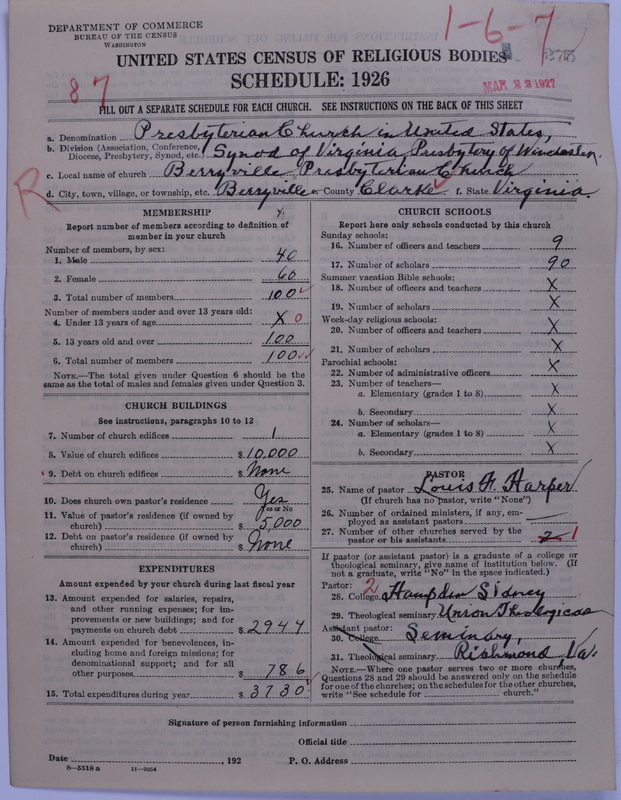 DEPARTMENT OF COMMERCE
BUREAU OF THE CENSUS
WASHINGTON
1-6-7
UNITED STATES CENSUS OF RELIGIOUS BODIES
SCHEDULE: 1926
MAR 22 1927
87
FILL OUT A SEPARATE SCHEDULE FOR EACH CHURCH. SEE INSTRUCTIONS ON THE BACK OF THIS SHEET
a. Denomination Presbyterian Church in United States,
b. Division (Association, Conference, Diocese, Presbytery, Synod, etc.) Synod of Virginia, Presbytery of Winchester.
c. Local name of church Berryville Presbyterian Church
R
d. City, town, village, or township, etc. Berryville e. County Clarke f. State Virginia.
MEMBERSHIP
Report number of members according to definition of member in your church
Number of members, by sex:
1. Male 40
2. Female 60
3. Total number of members 100
Number of members under and over 13 years old:
4. Under 13 years of age X 0
5. 13 years old and over 100
6. Total number of members 100
NOTE.—The total given under Question 6 should be the same as the total of males and females given under Question 3.
CHURCH BUILDINGS
See instructions, paragraphs 10 to 12
7. Number of church edifices 1
8. Value of church edifices $ 10,000
9. Debt on church edifices $ None
10. Does church own pastor's residence Yes
Yes or No
11. Value of pastor's residence (if owned by church) $ 5,000
12. Debt on pastor's residence (if owned by church) $ None
EXPENDITURES
Amount expended by your church during last fiscal year
13. Amount expended for salaries, repairs, and other running expenses; for improvements or new buildings; and for payments on church debt $ 2944
14. Amount expended for benevolences, including home and foreign missions; for denominational support; and for all other purposes $ 786
15. Total expenditures during year $ 3730
CHURCH SCHOOLS
Report here only schools conducted by this church
Sunday schools:
16. Number of officers and teachers 9
17. Number of scholars 90
Summer vacation Bible schools:
18. Number of officers and teachers X
19. Number of scholars X
Week-day religious schools:
20. Number of officers and teachers X
21. Number of scholars X
Parochial schools:
22. Number of administrative officers X
23. Number of teachers—
a. Elementary (grades 1 to 8) X
b. Secondary X
24. Number of scholars—
a. Elementary (grades 1 to 8) X
b. Secondary X
PASTOR
25. Name of pastor Louis F. Harper
(If church has no pastor, write "None")
26. Number of ordained ministers, if any, employed as assistant pastors
27. Number of other churches served by the pastor or his assistants 2 1
If pastor (or assistant pastor) is a graduate of a college or theological seminary, give name of institution below. (If not a graduate, write "No" in the space indicated.)
Pastor: 2
28. College Hampden Sidney
29. Theological seminary Union Theological
Assistant pastor:
30. College Seminary,
31. Theological seminary Richmond Va.
NOTE.—Where one pastor serves two or more churches, Questions 28 and 29 should be answered only on the schedule for one of the churches; on the schedules for the other churches, write "See schedule for ... church."
Signature of person furnishing information
Official title
Date , 192 P. O. Address
8—5518 a 11—9054